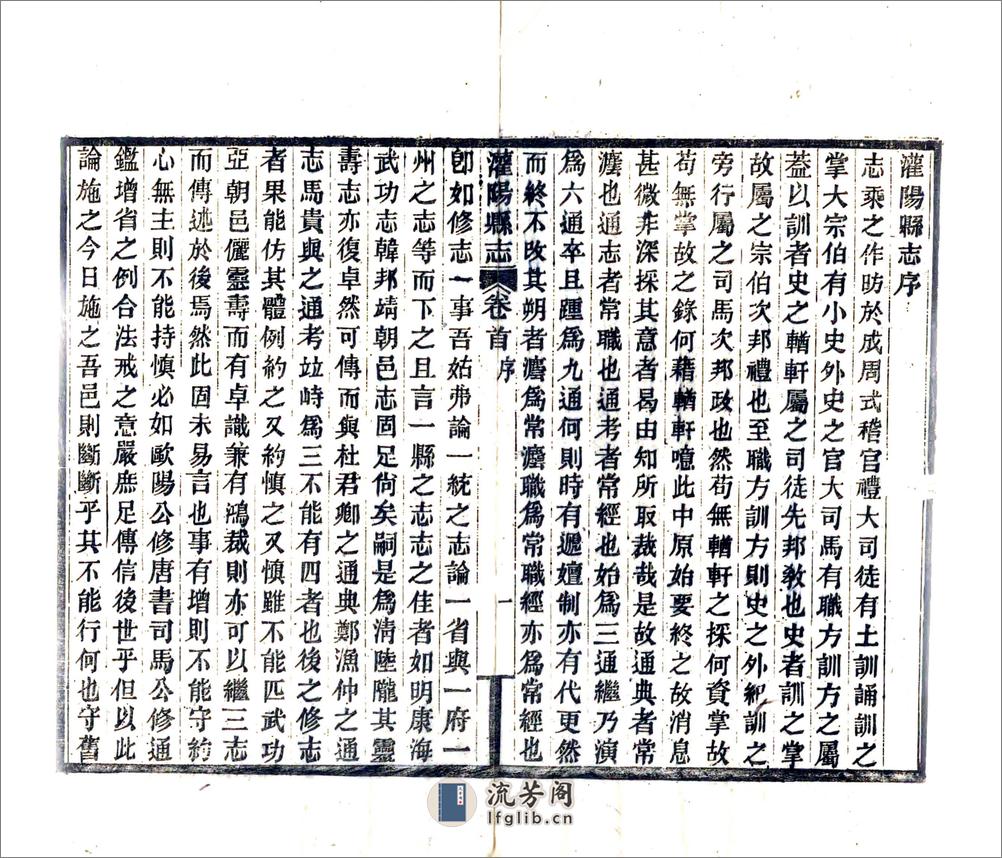 灌陽縣志序
志乘之作昉於成周式稽官禮大司徒有土訓誦訓之
掌大宗伯有小史外史之官大司馬有職方訓方之屬
葢以訓者史之輶軒屬之司徒先邦敎也史者訓之掌
故屬之宗伯次邦禮也至職方訓方則史之外紀訓之
旁行屬之司馬次邦政也然苟無輶軒之採何資掌故
苟無掌故之錄何藉輶軒噫此中原始要終之故消息
甚微非深探其意者曷由知所取裁哉是故通典者常
灋也通志者常職也通考者常經也始爲三通繼乃演
爲六通卒且踵爲九通何則時有遞嬗制亦有代更然
而終不改其朔者灋爲常灋職爲常職經亦爲常經也
灌陽縣志 卷首 序 一
卽如修志一事吾姑弗論一統之志論一省與一府一
州之志等而下之且言一縣之志志之佳者如明康海
武功志韓邦靖朝邑志固足尙矣嗣是爲淸陸隴其靈
壽志亦復卓然可傳而與杜君卿之通典鄭漁仲之通
志馬貴與之通考竝峙爲三不能有四者也後之修志
者果能仿其體例約之又約愼之又愼雖不能匹武功
亞朝邑儷靈壽而有卓識兼有鴻裁則亦可以繼三志
而傳述於後焉然此固未易言也事有增則不能守約
心無主則不能持愼必如歐陽公修唐書司馬公修通
鑑增省之例合法戒之意嚴庶足傳信後世乎但以此
論施之今日施之吾邑則斷斷乎其不能行何也守舊
流芳阁
lfglib.cn